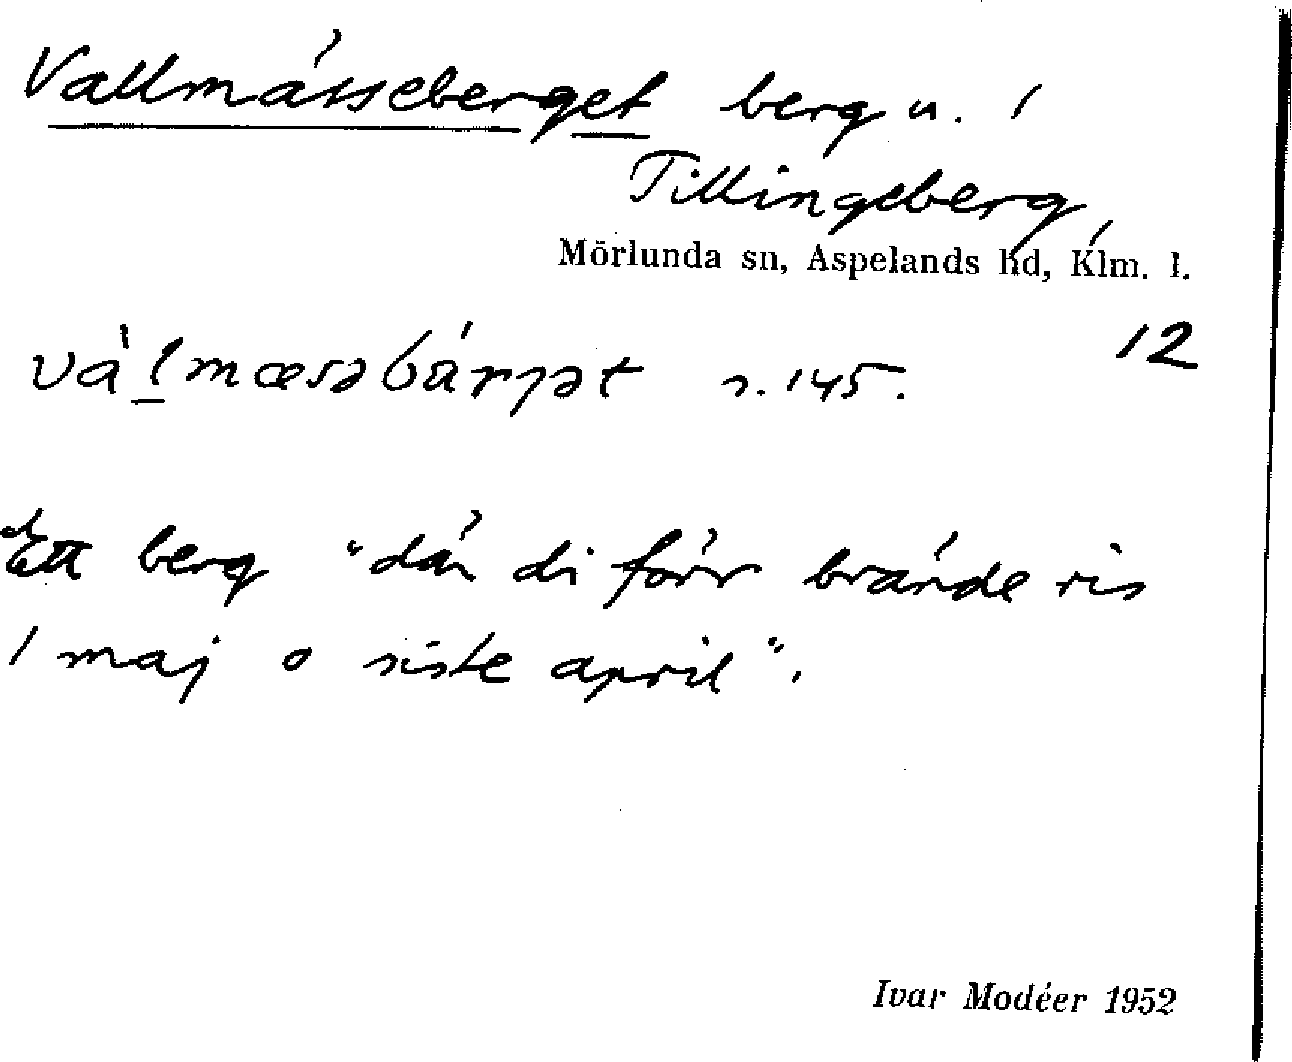 Vallmässeberget berg u. i
Tillingeberg,
Mörlunda sn, Aspelands hd, Klm. l.
12
vàlmæsəbárjət s. 145.
Ett berg "där di förr brände ris
1 maj o siste april".
Ivar Modéer 1952